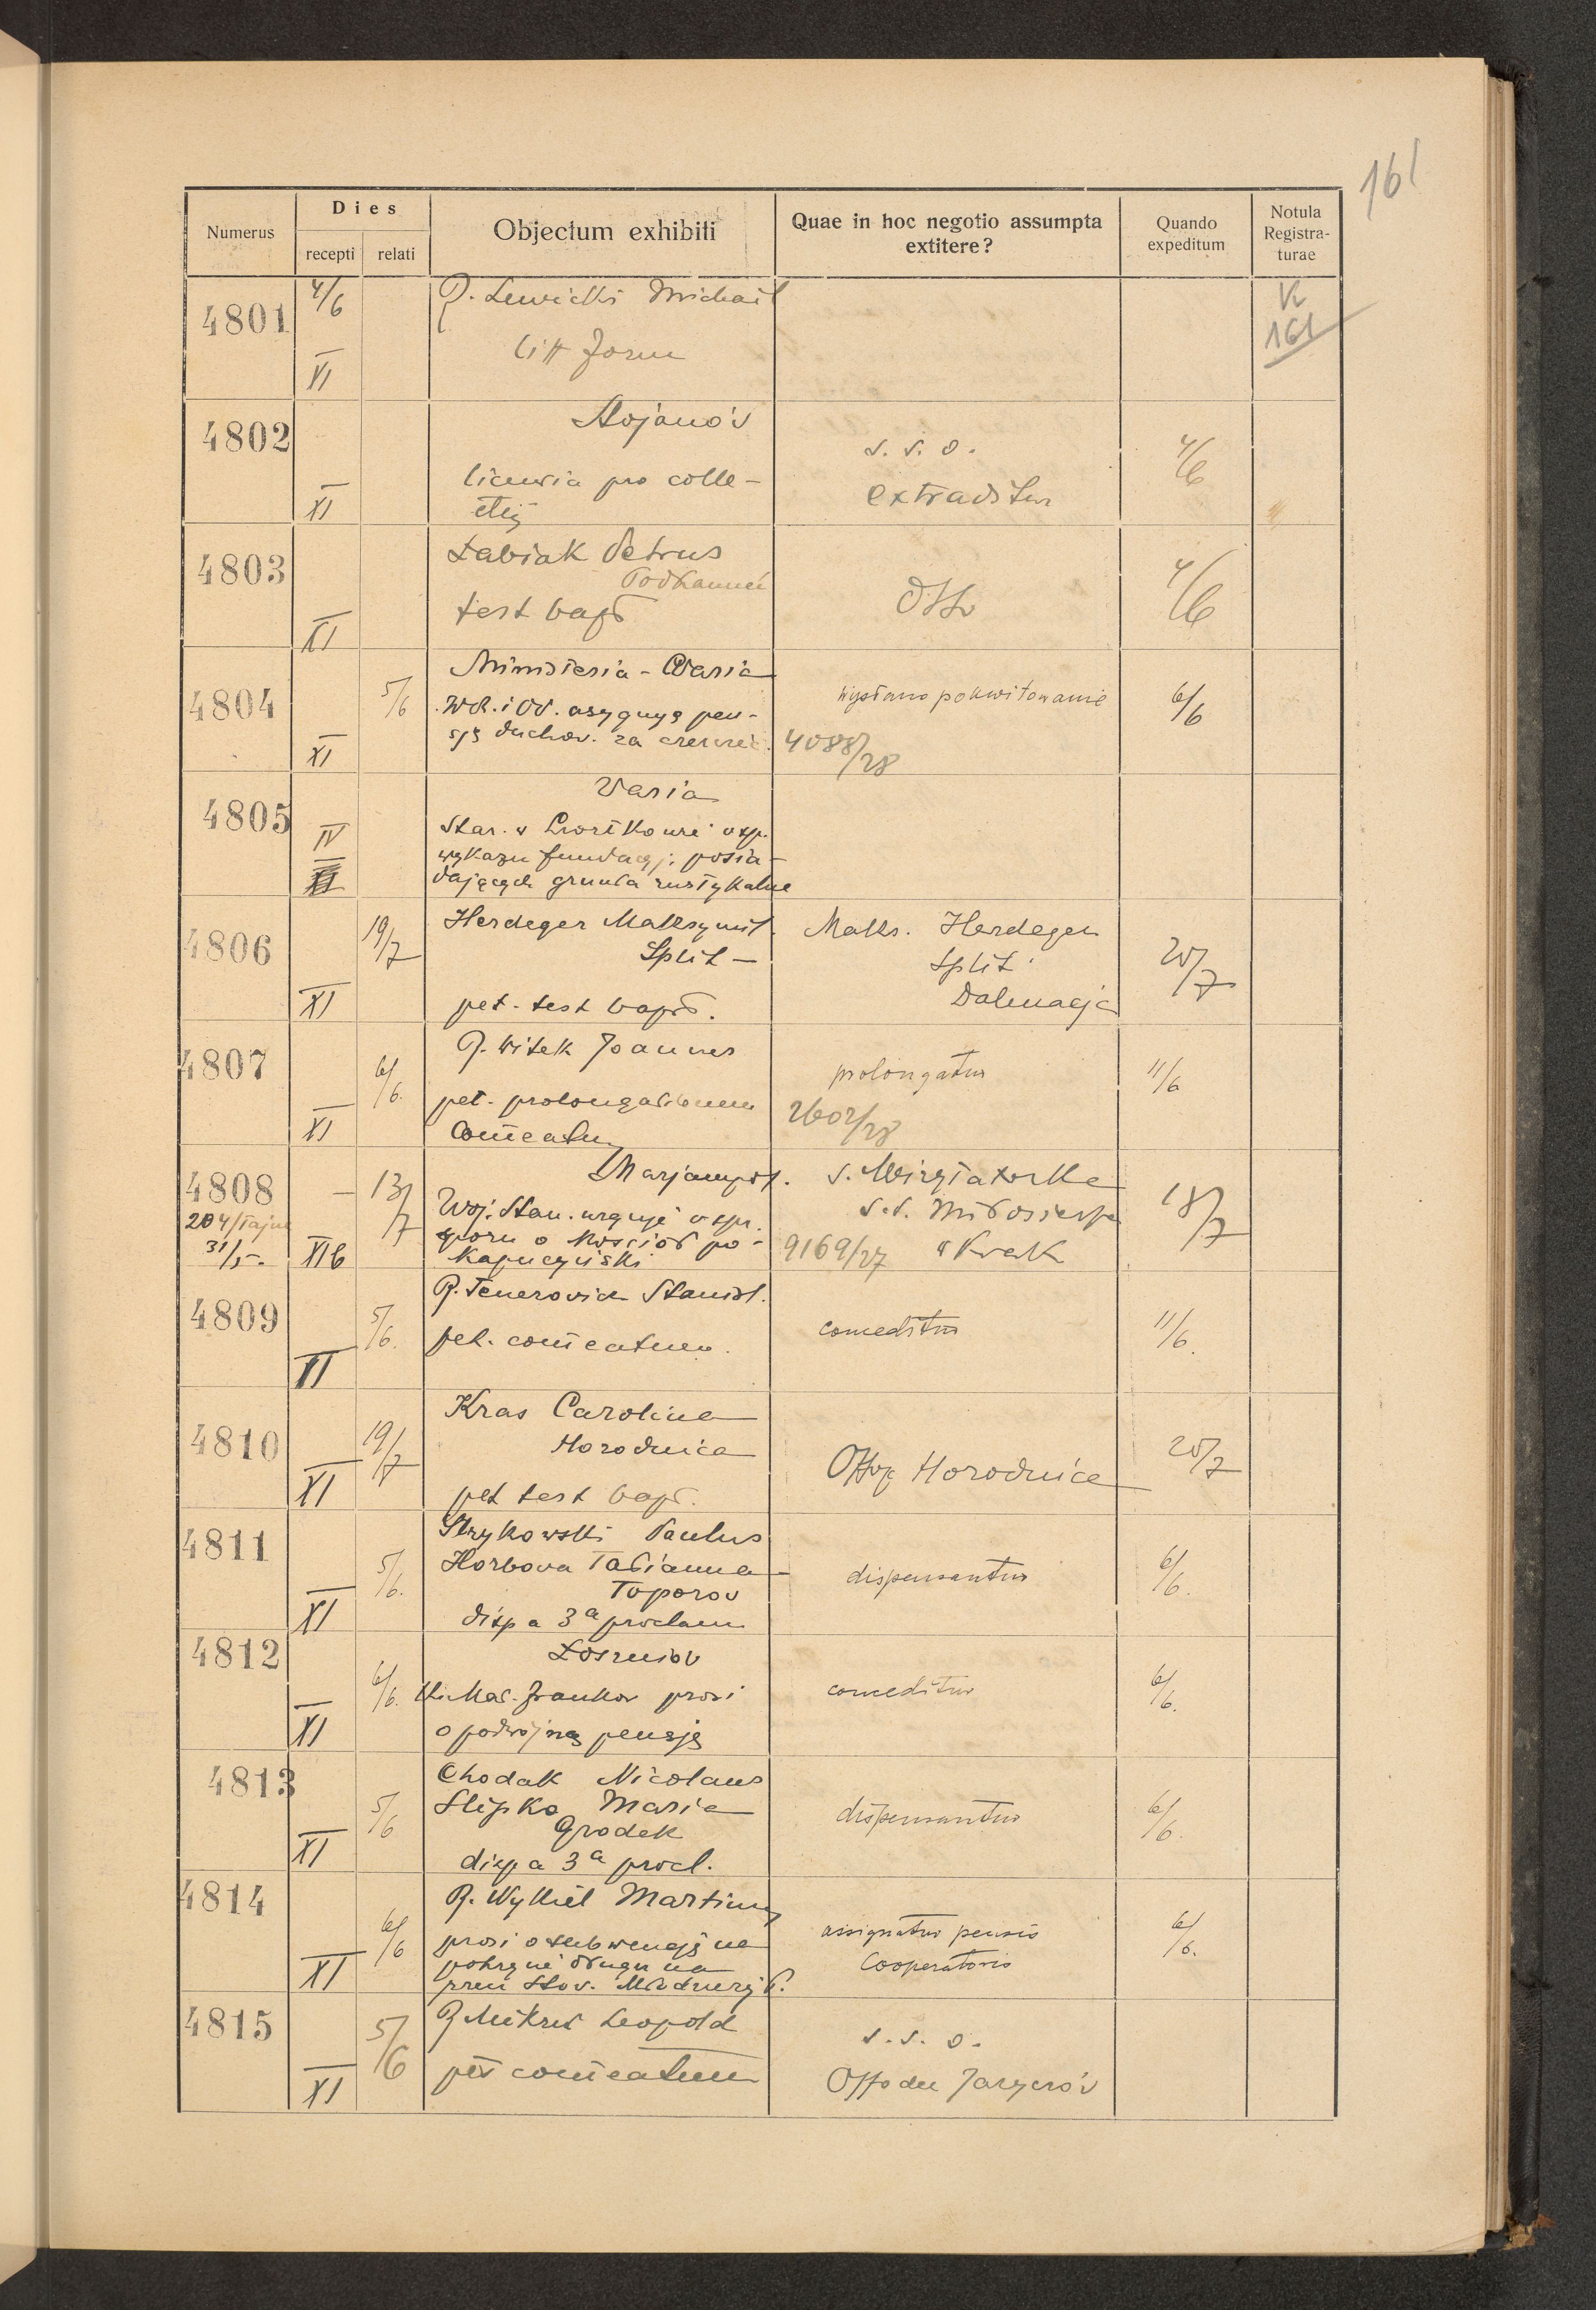 161
Numerus
Dies
recepti
relati
Objectum exhibiti
Quae in hoc negotio assumpta
extitere?
Quando
expeditum
Notula
Registra-
turae
4801
4/6
XI
R. Lewicki Michael
litt form
K
161
4802
XI
Stojanów
licencia pro colle-
s. s. o.
extraditur
4/6
4803
XI
Łabiak Petrus
Podkamień
test bapt
4/6
4804
XI
5/6
Ministeria - Varia
W.R. i O.P. asygnuje pen-
sję duchow. za czerwiec.
wysłano pokwitowanie
4088/28
6/6
4805
IV
Varia
Star. w
wykazu fundacji posia-
dających grunta rustykalne
4806
XI
19/7
Herdeger Maksymil.
Split -
pet. test bapt.
Maks. Herdeger
Split
Dalmacja
20/7
4807
XI
6/6.
R. Witek Joannes
pet. prolongationem
comeatus
prolongatur
2602/28
11/6
4808
204/Tajne
31/5-.
XIb
13/7
Marjampol.
Woj. Stan. urguje w spr.
sporu o kościół po-
kapucyński
s.s. Miłosierdzia
9169/27 w Krak
18/7
4809
XI
5/6.
R. Tenerowicz Stanisl.
pet. comeatum.
conceditur
11/6.
4810
XI
19/7
Kras Carolina
Horodnica
pet test bapt.
Offo Horodnica
20/7
4811
XI
5/6.
Strykowski Paulus
Horbova Tatianna -
Toporov
disp a 3a proclam
dispensantur
6/6.
4812
XI
6/6.
Łoszniów
prosi
o podwójną pensję
conceditur
6/6.
4813
XI
5/6
Chodak Nicolaus
Slipko Maria
Grodek
disp a 3a procl.
dispensantur
6/6.
4814
XI
6/6
R. Wykiel Martinus
prosi o subwencję na
pokrycie długu na
assignatur pensio
Cooperatoris
6/6.
4815
XI
5/6
R Leopold
pet comeatum
s. s. o.
Offo